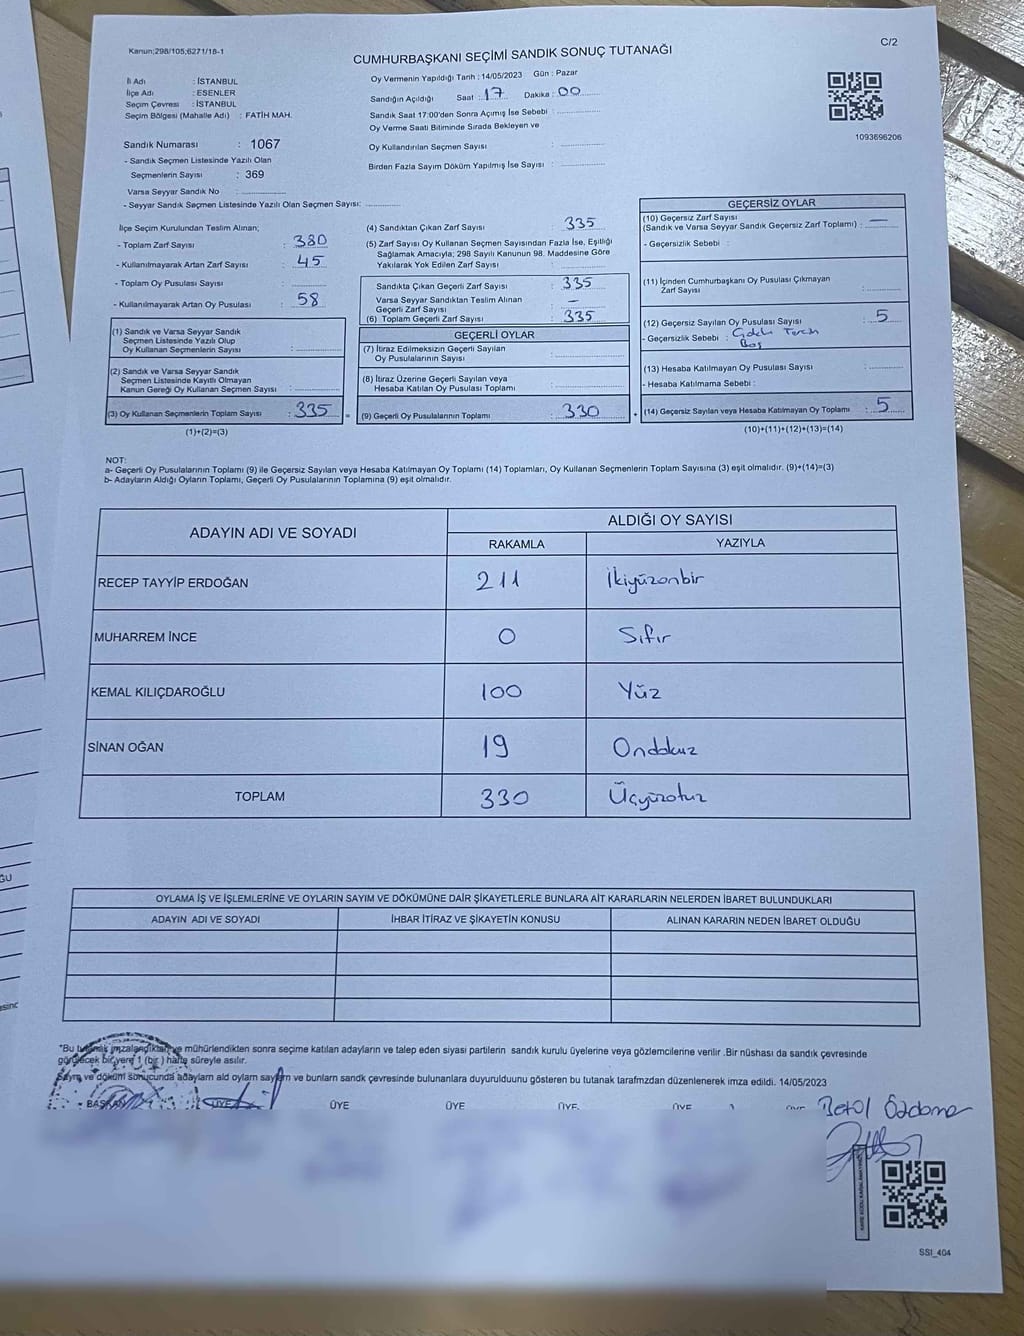 Kanun;298/105,6271/18-1
C/2
CUMHURBAŞKANI SEÇİMİ SANDIK SONUÇ TUTANAĞI
İl Adı : İSTANBUL
İlçe Adı : ESENLER
Seçim Çevresi : İSTANBUL
Seçim Bölgesi (Mahalle Adı) : FATİH MAH.
Sandık Numarası : 1067
- Sandık Seçmen Listesinde Yazılı Olan
Seçmenlerin Sayısı : 369
Varsa Seyyar Sandık No :
- Seyyar Sandık Seçmen Listesinde Yazılı Olan Seçmen Sayısı:
Oy Vermenin Yapıldığı Tarih : 14/05/2023 Gün : Pazar
Sandığın Açıldığı Saat : 17 Dakika : 00
Sandık Saat 17:00'den Sonra Açımış İse Sebebi :
Oy Verme Saati Bitiminde Sırada Bekleyen ve
Oy Kullandırılan Seçmen Sayısı :
Birden Fazla Sayım Döküm Yapılmış İse Sayısı :
1093696206
İlçe Seçim Kurulundan Teslim Alınan;
- Toplam Zarf Sayısı : 380
- Kullanılmayarak Artan Zarf Sayısı : 45
- Toplam Oy Pusulası Sayısı :
- Kullanılmayarak Artan Oy Pusulası : 58
(1) Sandık ve Varsa Seyyar Sandık
Seçmen Listesinde Yazılı Olup
Oy Kullanan Seçmenlerin Sayısı :
(2) Sandık ve Varsa Seyyar Sandık
Seçmen Listesinde Kayıtlı Olmayan
Kanun Gereği Oy Kullanan Seçmen Sayısı :
(3) Oy Kullanan Seçmenlerin Toplam Sayısı : 335
(1)+(2)=(3)
(4) Sandıktan Çıkan Zarf Sayısı : 335
(5) Zarf Sayısı Oy Kullanan Seçmen Sayısından Fazla İse, Eşitliği
Sağlamak Amacıyla; 298 Sayılı Kanunun 98. Maddesine Göre
Yakılarak Yok Edilen Zarf Sayısı :
Sandıkta Çıkan Geçerli Zarf Sayısı : 335
Varsa Seyyar Sandıktan Teslim Alınan
Geçerli Zarf Sayısı : —
(6) Toplam Geçerli Zarf Sayısı : 335
GEÇERLİ OYLAR
(7) İtiraz Edilmeksizin Geçerli Sayılan
Oy Pusulalarının Sayısı :
(8) İtiraz Üzerine Geçerli Sayılan veya
Hesaba Katılan Oy Pusulası Toplamı :
= (9) Geçerli Oy Pusulalarının Toplamı : 330
GEÇERSİZ OYLAR
(10) Geçersiz Zarf Sayısı
(Sandık ve Varsa Seyyar Sandık Geçersiz Zarf Toplamı) : —
- Geçersizlik Sebebi :
(11) İçinden Cumhurbaşkanı Oy Pusulası Çıkmayan
Zarf Sayısı :
(12) Geçersiz Sayılan Oy Pusulası Sayısı : 5
- Geçersizlik Sebebi : Çoklu Tercih
Boş
(13) Hesaba Katılmayan Oy Pusulası Sayısı :
- Hesaba Katılmama Sebebi :
+ (14) Geçersiz Sayılan veya Hesaba Katılmayan Oy Toplamı : 5
(10)+(11)+(12)+(13)=(14)
NOT:
a- Geçerli Oy Pusulalarının Toplamı (9) ile Geçersiz Sayılan veya Hesaba Katılmayan Oy Toplamı (14) Toplamları, Oy Kullanan Seçmenlerin Toplam Sayısına (3) eşit olmalıdır. (9)+(14)=(3)
b- Adayların Aldığı Oyların Toplamı, Geçerli Oy Pusulalarının Toplamına (9) eşit olmalıdır.
ADAYIN ADI VE SOYADI ALDIĞI OY SAYISI
RAKAMLA YAZIYLA
RECEP TAYYİP ERDOĞAN 211 İkiyüzonbir
MUHARREM İNCE 0 Sıfır
KEMAL KILIÇDAROĞLU 100 Yüz
SİNAN OĞAN 19 Ondokuz
TOPLAM 330 Üçyüzotuz
OYLAMA İŞ VE İŞLEMLERİNE VE OYLARIN SAYIM VE DÖKÜMÜNE DAİR ŞİKAYETLERLE BUNLARA AİT KARARLARIN NELERDEN İBARET BULUNDUKLARI
ADAYIN ADI VE SOYADI İHBAR İTİRAZ VE ŞİKAYETİN KONUSU ALINAN KARARIN NEDEN İBARET OLDUĞU
"Bu tutanak imzalandıktan ve mühürlendikten sonra seçime katılan adayların ve talep eden siyasi partilerin sandık kurulu üyelerine veya gözlemcilerine verilir .Bir nüshası da sandık çevresinde
görülecek bir yere 1 (bir ) hafta süreyle asılır.
Sayım ve döküm sonucunda adayların ald oyların sayım ve bunların sandk çevresinde bulunanlara duyurulduunu gösteren bu tutanak tarafmzdan düzenlenerek imza edildi. 14/05/2023
BAŞKAN ÜYE ÜYE ÜYE ÜYE ÜYE
SSI_404